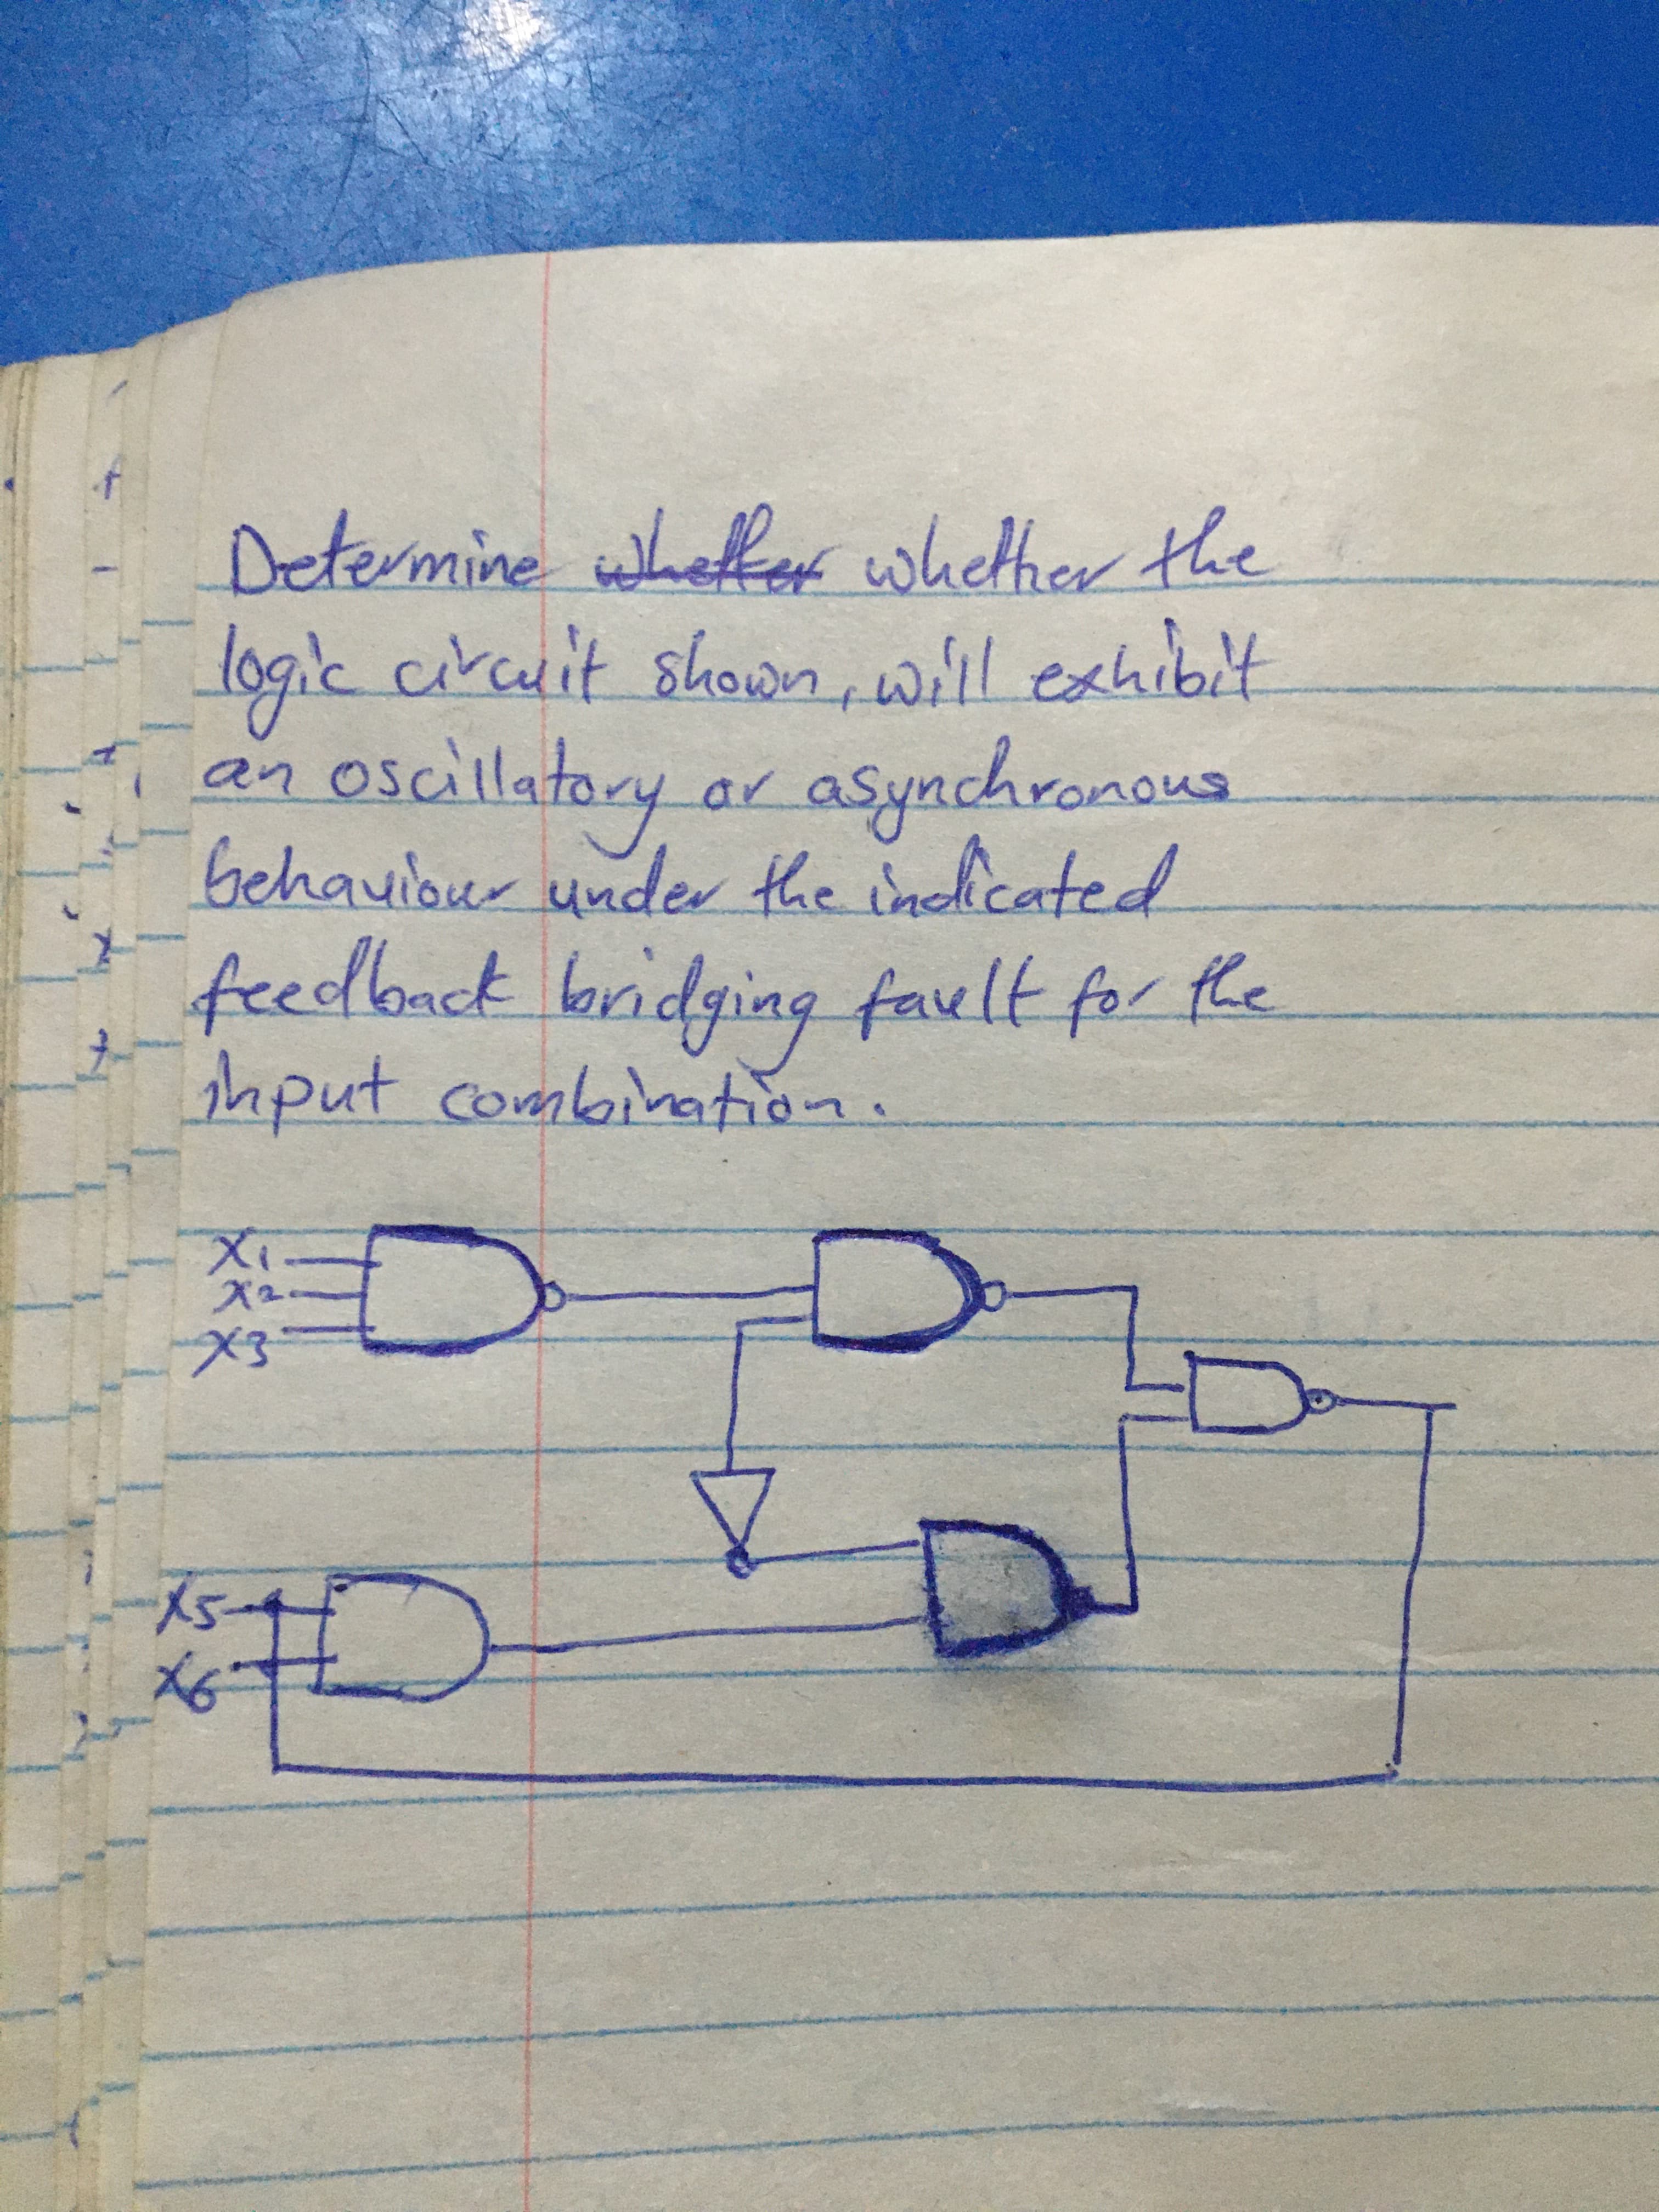 Determine whether whether the
logic circuit shown, will exhibit
an oscillatory or asynchronous
behaviour under the indicated
feedback bridging fault for the
input combination.
X1
X2
X3
X5
X6